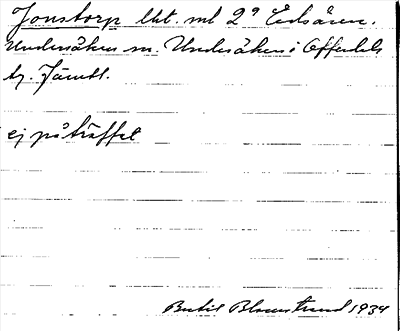 Jonstorp lht. ml 2 Ensåren.
Undersåkers sn. Undersåkers i Offerdals
tg. Jämtl.
ej påträffat
Bertil Blomstrand 1934